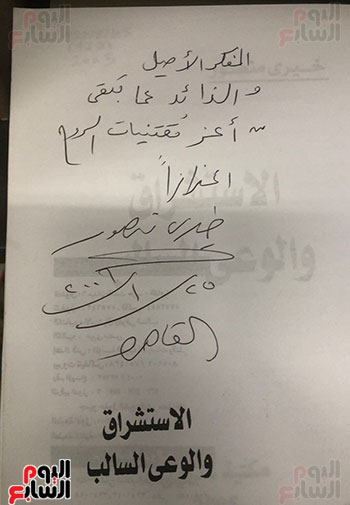 اليوم السابع
المفكر الأصيل
والذائد عما تبقى
من أعز مقتنيات الروح
اعتزازاً
خيرى منصور
القاهرة
الاستشراق
والوعى السالب
اليوم السابع
اليوم السابع